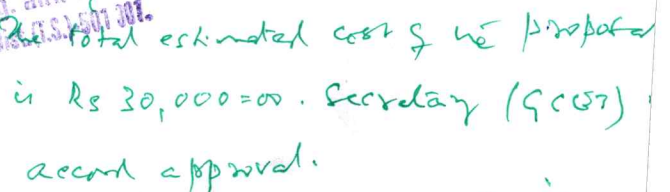 (T.S.)-501 301.
The total estimated cost of the proposal
is Rs 30,000=00. Secretary (GCET)
accord approval.